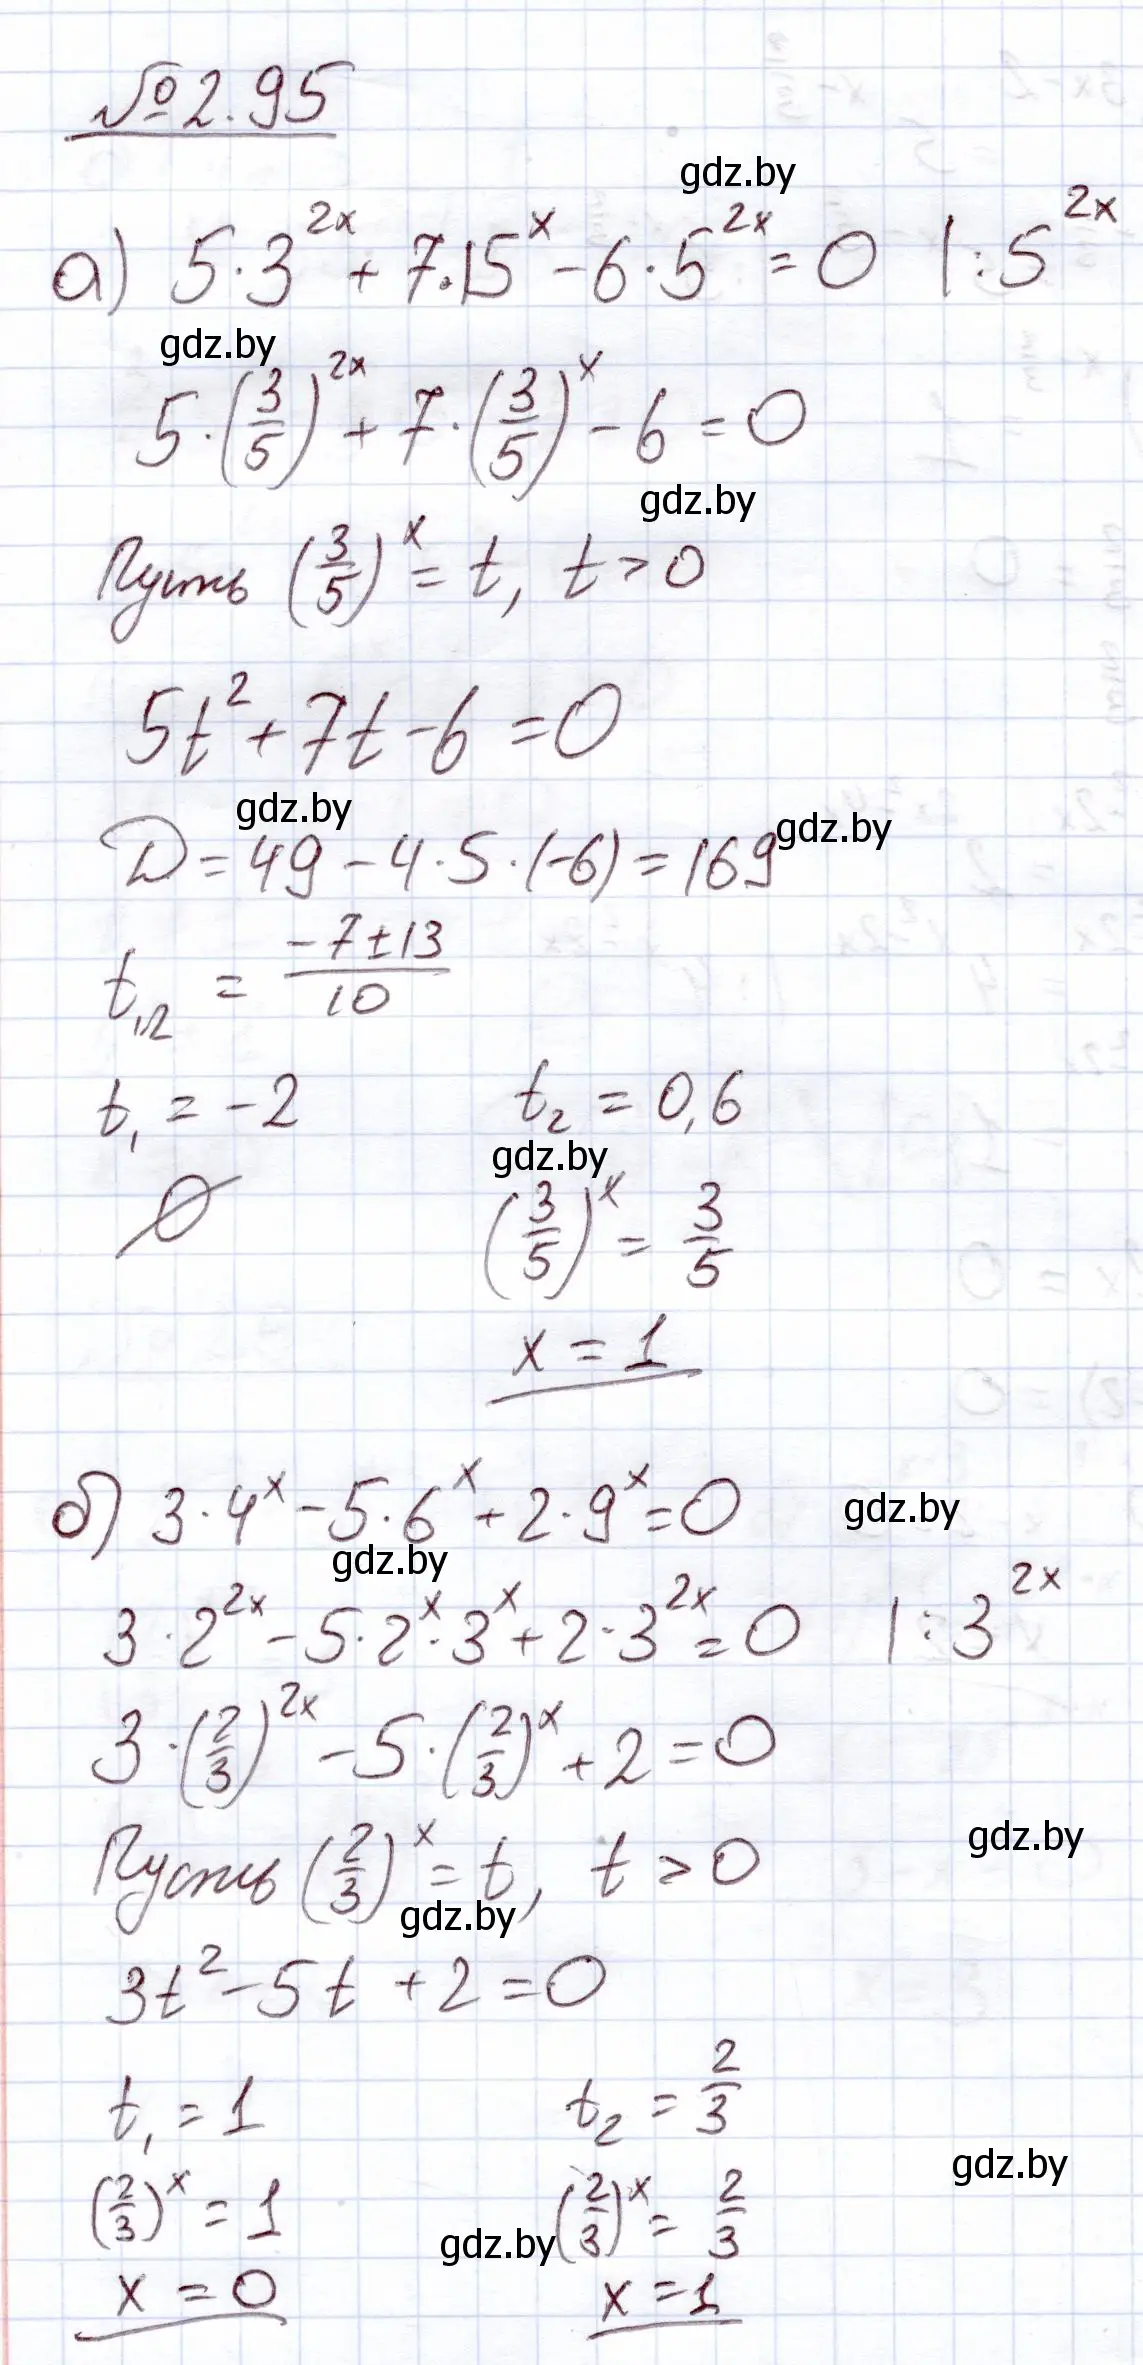 № 2.95
gdz.by
а) 5·3^{2x} + 7·15^x − 6·5^{2x} = 0 |:5^{2x}
gdz.by
5·(3/5)^{2x} + 7·(3/5)^x − 6 = 0
gdz.by
Пусть (3/5)^x = t, t > 0
5t² + 7t − 6 = 0
gdz.by
gdz.by
D = 49 − 4·5·(−6) = 169
t_{1,2} = (−7 ± 13)/10
t₁ = −2 t₂ = 0,6
gdz.by
∅ (3/5)^x = 3/5
x = 1
б) 3·4^x − 5·6^x + 2·9^x = 0
gdz.by
gdz.by
3·2^{2x} − 5·2^x·3^x + 2·3^{2x} = 0 |:3^{2x}
3·(2/3)^{2x} − 5·(2/3)^x + 2 = 0
gdz.by
Пусть (2/3)^x = t, t > 0
gdz.by
3t² − 5t + 2 = 0
t₁ = 1 t₂ = 2/3
gdz.by
(2/3)^x = 1 (2/3)^x = 2/3
gdz.by
x = 0 x = 1